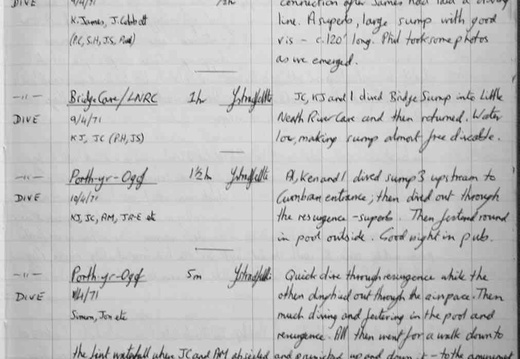 DIVE 9/4/71 ½h connection after James had laid a diving
K. James, J. Cobbett line. A superb, large sump with good
(P.C, S.H, JS, Rod) vis - c.120' long. Phil took some photos
as we emerged.
-"- Bridge Cave/LNRC 1hr Ystradfellte JC, KJ and I dived Bridge Sump into Little
DIVE 9/4/71 Neath River Cave and then returned. Water
KJ, JC (P.H, JS) low, making sump almost free diveable.
-"- Porth-yr-Ogof 1½h Ystradfellte Ken and I dived sump 3 upstream to
DIVE 10/4/71 Cwmbran entrance; then dived out through
KJ, JC, AM, JR-E etc the resurgence - superb. Then round
in pool outside. Good night in pub.
-"- Porth-yr-Ogof 5m Ystradfellte Quick dive through resurgence while the
DIVE /4/71 others out through the airspace. Then
Simon, Jon etc much diving and in the pool and
resurgence. All then went for a walk down to
the first waterfall where JC and AM abseiled and up and down it - to the amusement